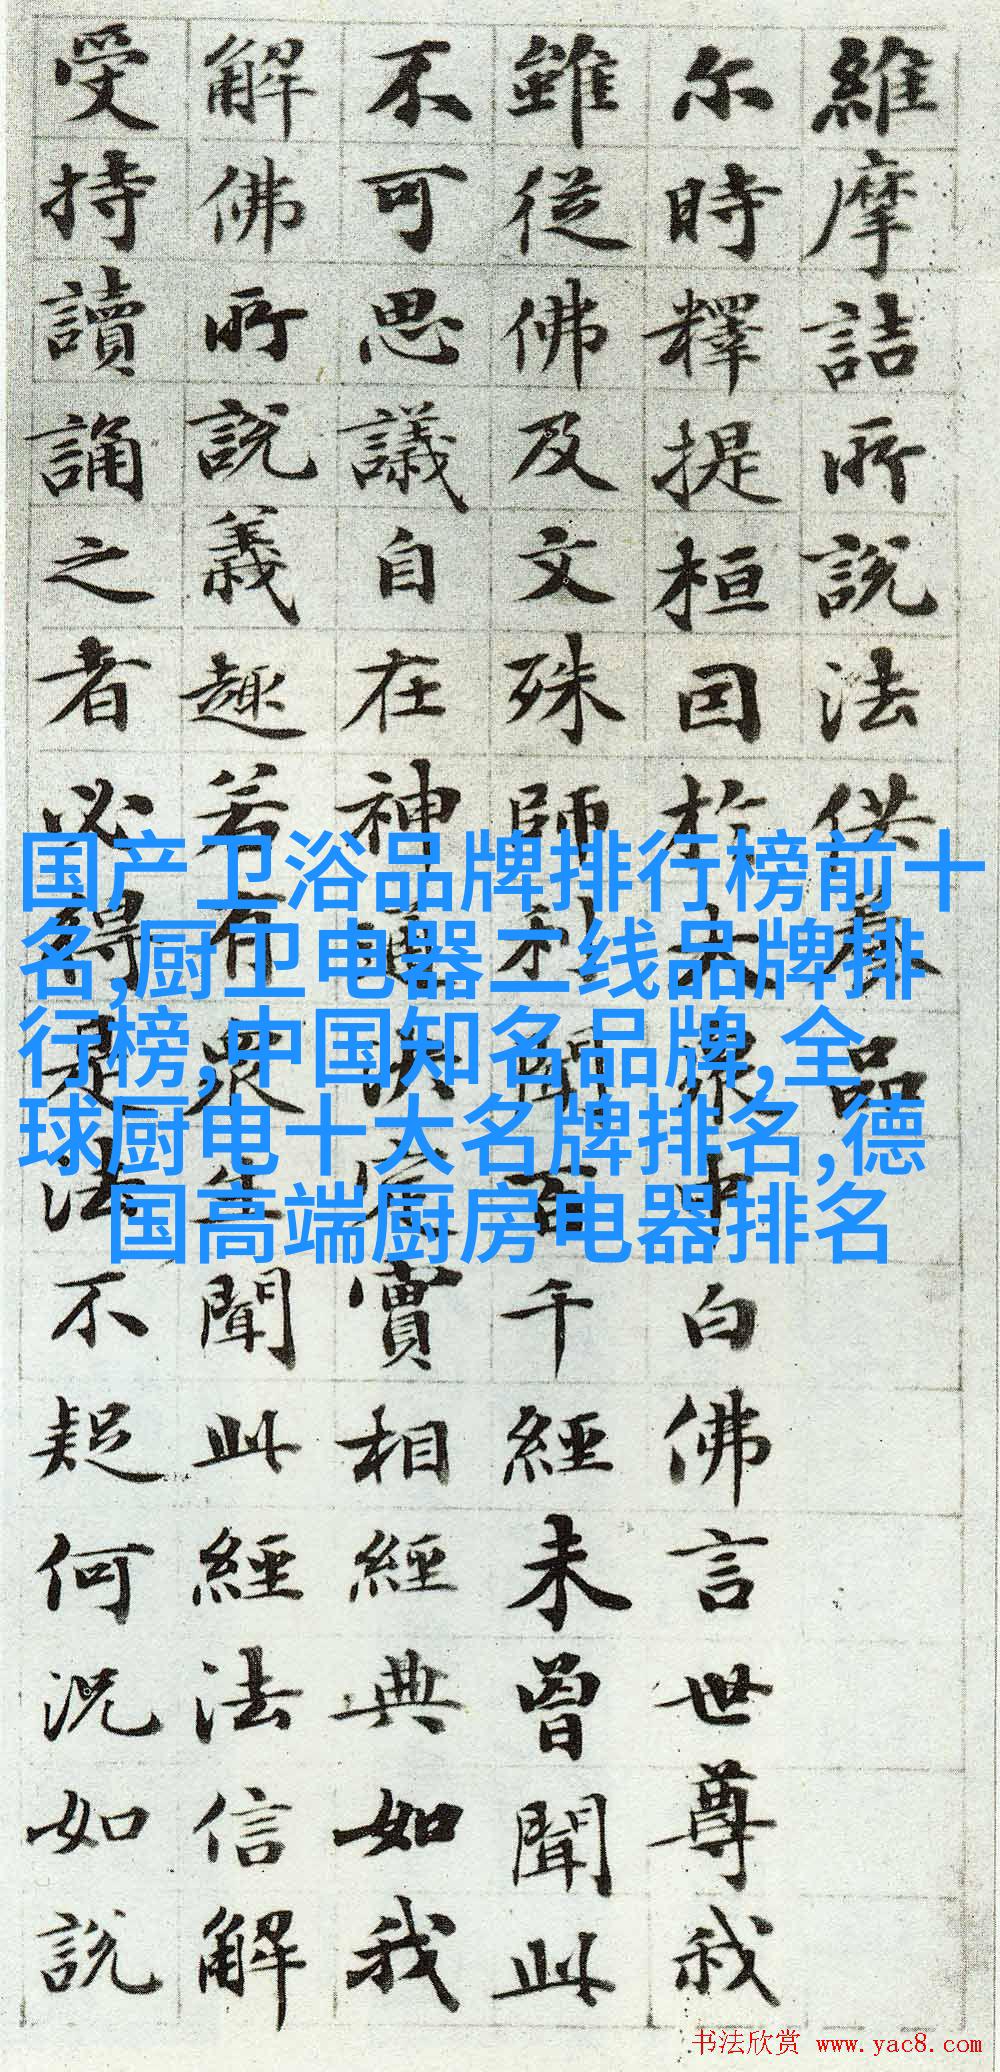 維摩詰所說法供養品
尔時釋提桓因於大眾中白佛言世尊我
雖從佛及文殊師利聞百千經未曾聞此
不可思議自在神通決定實相經典如我
解佛所說義趣若有眾生聞此經法信解
受持讀誦之者必得是法不疑何況如說
国产卫浴品牌排行榜前十
名,厨卫电器二线品牌排
行榜,中国知名品牌,全
球厨电十大名牌排名,德
国高端厨房电器排名
书法欣赏 www.yac8.com